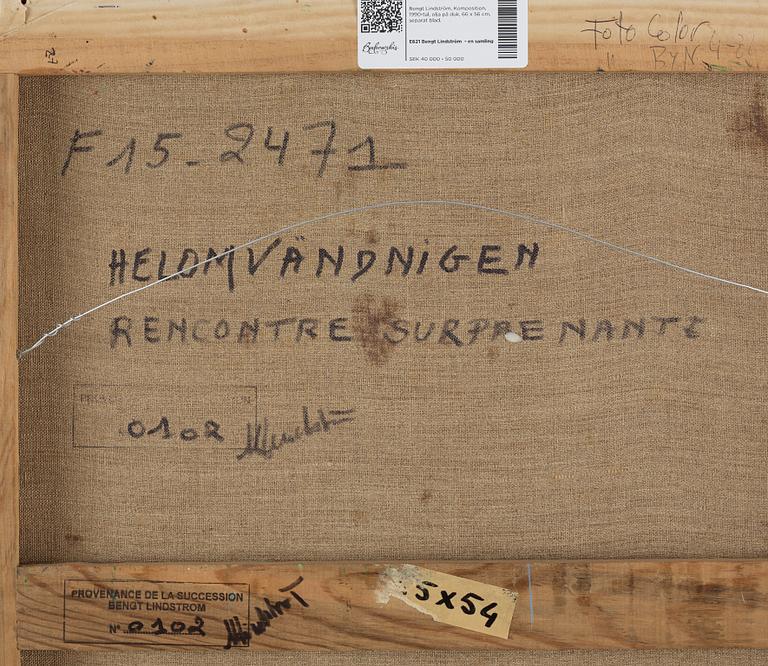 Bengt Lindström, Komposition,
1990-tal, olja på duk, 66 x 56 cm,
separat blad.
E621 Bengt Lindström - en samling
Bukowskis
SEK 40 000 - 50 000
Foto Color
" BYN
F15-2471
HELOMVÄNDNIGEN
RENCONTRE SURPRENANTE
0102
PROVENANCE DE LA SUCCESSION
BENGT LINDSTROM
N° 0102
5x54